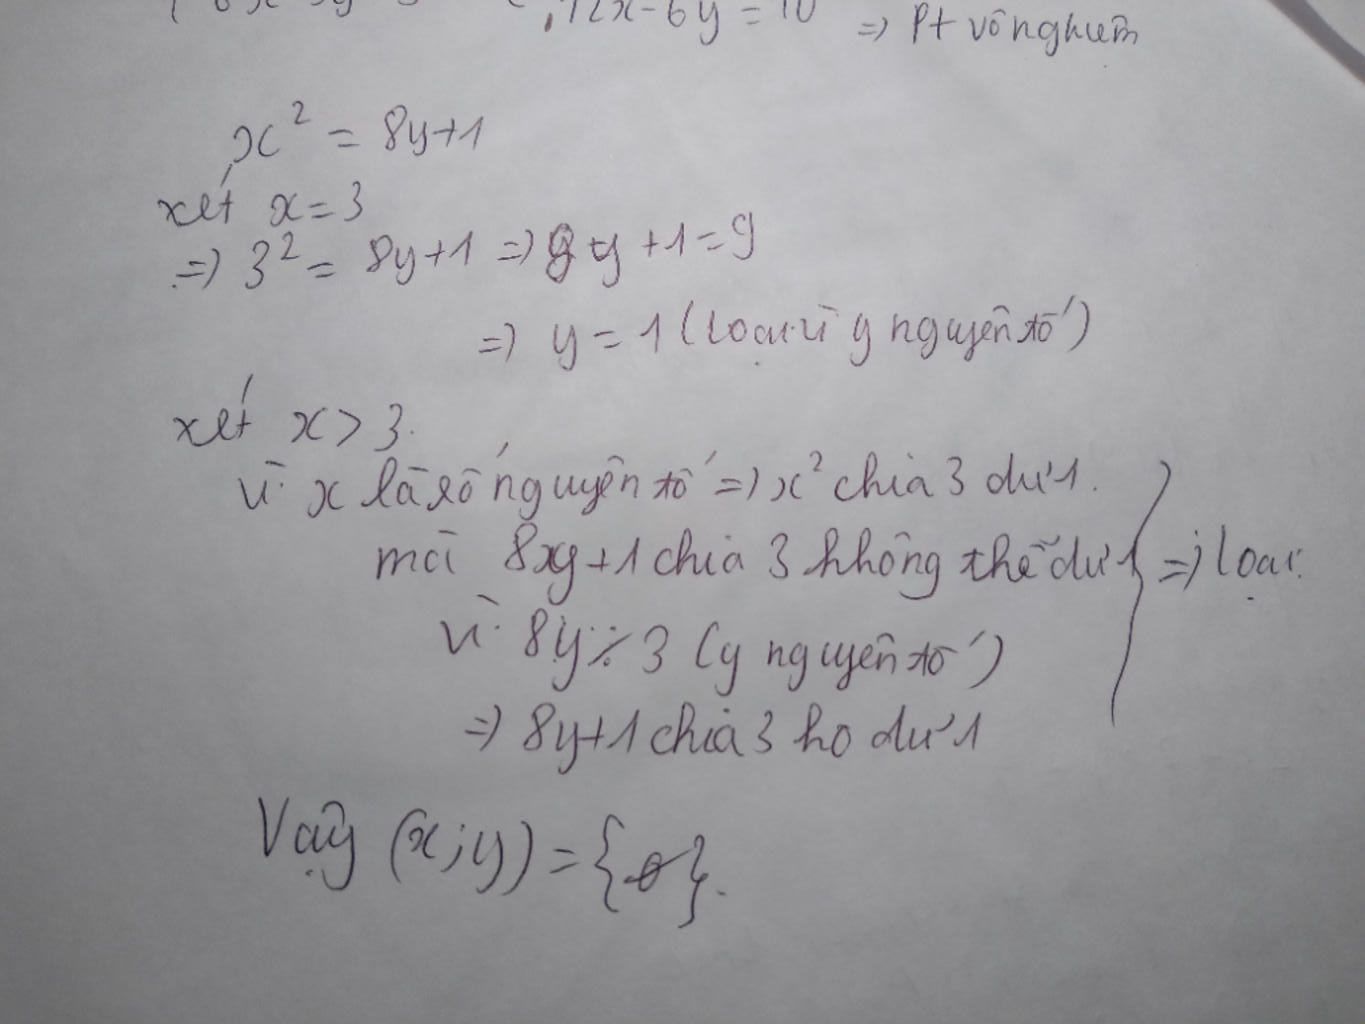 12x-6y=10 => Pt vô nghiệm
x² = 8y+1
xét x=3
=> 3² = 8y+1 => 8y+1=9
=> y=1 (loại vì y nguyên tố)
xét x>3.
vì x là số nguyên tố => x² chia 3 dư 1.
mà 8y+1 chia 3 không thể dư 1 => loại.
vì 8y⋮̸3 (y nguyên tố)
=> 8y+1 chia 3 ko dư 1
Vậy (x;y)={ø}.